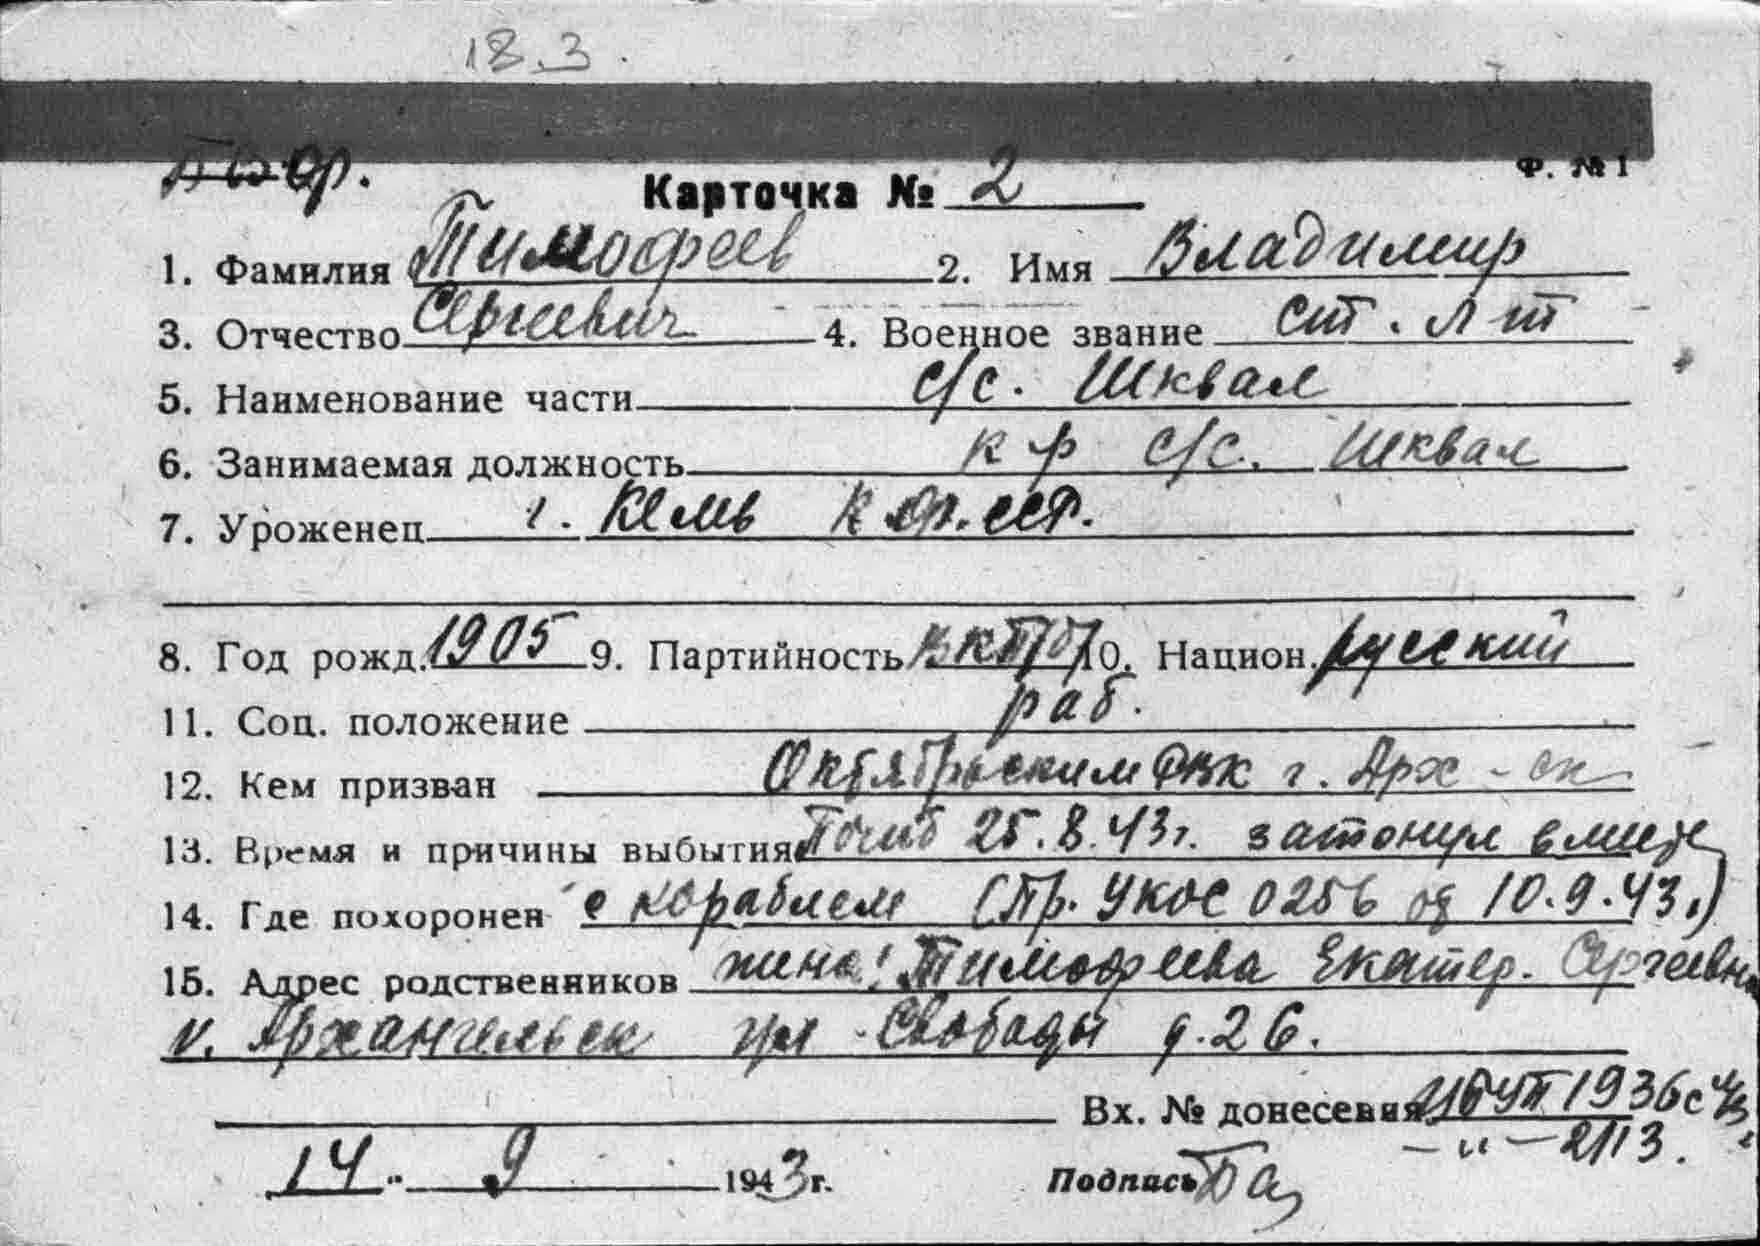 18.3.
Ф. № 1
Карточка № 2
1. Фамилия Тимофеев 2. Имя Владимир
3. Отчество Сергеевич 4. Военное звание ст. л-т
5. Наименование части с/с. Шквал
6. Занимаемая должность к-р с/с. Шквал
7. Уроженец г. Кемь К.Ф.ССР.
8. Год рожд. 1905 9. Партийность ВКП/б/ 10. Национ. русский
11. Соц. положение раб.
12. Кем призван Октябрьским РВК г. Арх-ск
13. Время и причины выбытия Погиб 25.8.43г. затонул вместе
14. Где похоронен с кораблем (Пр. УКОС 0256 от 10.9.43.)
15. Адрес родственников жена: Тимофеева Екатер. Сергеевна
г. Архангельск ул Свободы д.26.
Вх. № донесения 1936с
— " — 2113.
14. 9 1943 г. Подпись